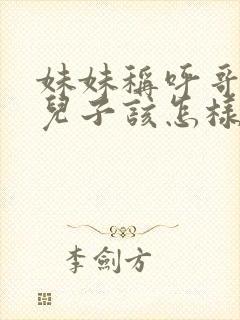 妹妹稱呼哥
兒子該怎樣
李劍方